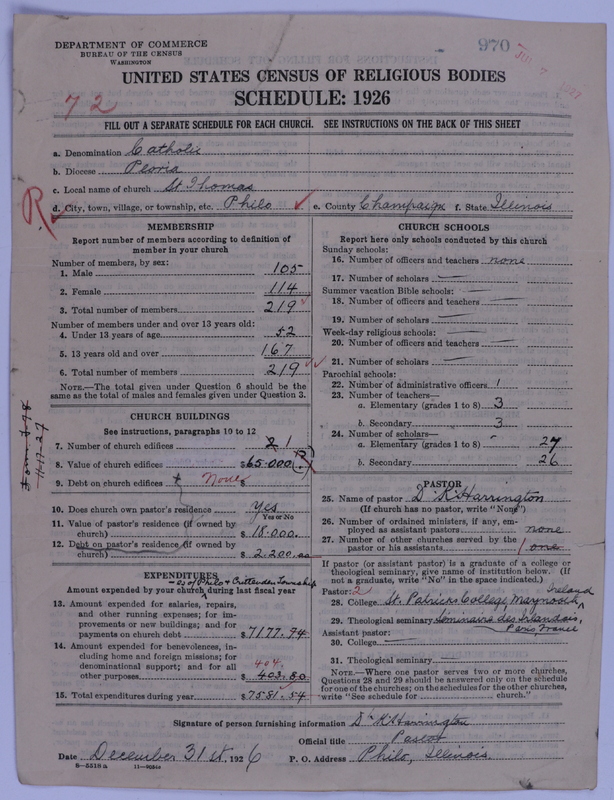 DEPARTMENT OF COMMERCE
BUREAU OF THE CENSUS
WASHINGTON
970
UNITED STATES CENSUS OF RELIGIOUS BODIES
SCHEDULE: 1926
72
FILL OUT A SEPARATE SCHEDULE FOR EACH CHURCH. SEE INSTRUCTIONS ON THE BACK OF THIS SHEET
a. Denomination Catholic
b. Diocese Peoria
c. Local name of church St Thomas
d. City, town, village, or township, etc. Philo
e. County Champaign f. State Illinois
R
MEMBERSHIP
Report number of members according to definition of member in your church
Number of members, by sex:
1. Male 105
2. Female 114
3. Total number of members 219
Number of members under and over 13 years old:
4. Under 13 years of age 52
5. 13 years old and over 167
6. Total number of members 219
NOTE.—The total given under Question 6 should be the same as the total of males and females given under Question 3.
CHURCH BUILDINGS
See instructions, paragraphs 10 to 12
7. Number of church edifices 2 1
8. Value of church edifices $65.000
9. Debt on church edifices None $
10. Does church own pastor's residence Yes
Yes or No
11. Value of pastor's residence (if owned by church) $18.000.
12. Debt on pastor's residence (if owned by church) $2.200.00
EXPENDITURES
— is of Philo & Crittenden Township
Amount expended by your church during last fiscal year
13. Amount expended for salaries, repairs, and other running expenses; for improvements or new buildings; and for payments on church debt $7177.94
14. Amount expended for benevolences, including home and foreign missions; for denominational support; and for all other purposes 404. $403.80
15. Total expenditures during year $7581.54
CHURCH SCHOOLS
Report here only schools conducted by this church
Sunday schools:
16. Number of officers and teachers none
17. Number of scholars —
Summer vacation Bible schools: —
18. Number of officers and teachers —
19. Number of scholars —
Week-day religious schools: —
20. Number of officers and teachers —
21. Number of scholars —
Parochial schools:
22. Number of administrative officers 1
23. Number of teachers—
a. Elementary (grades 1 to 8) 3
b. Secondary 3
24. Number of scholars—
a. Elementary (grades 1 to 8) 27
b. Secondary 26
PASTOR
25. Name of pastor D K Harrington
(If church has no pastor, write "None")
26. Number of ordained ministers, if any, employed as assistant pastors none
27. Number of other churches served by the pastor or his assistants 1 one
If pastor (or assistant pastor) is a graduate of a college or theological seminary, give name of institution below. (If not a graduate, write "No" in the space indicated.)
Pastor: 2
28. College St. Patricks College, Maynooth Ireland
29. Theological seminary Seminaire des Irlandais, Paris France
Assistant pastor:
30. College
31. Theological seminary
NOTE.—Where one pastor serves two or more churches, Questions 28 and 29 should be answered only on the schedule for one of the churches; on the schedules for the other churches, write "See schedule for church."
Signature of person furnishing information D K Harrington
Official title Pastor
Date December 31st, 1926 P. O. Address Philo, Illinois
8—5518 a